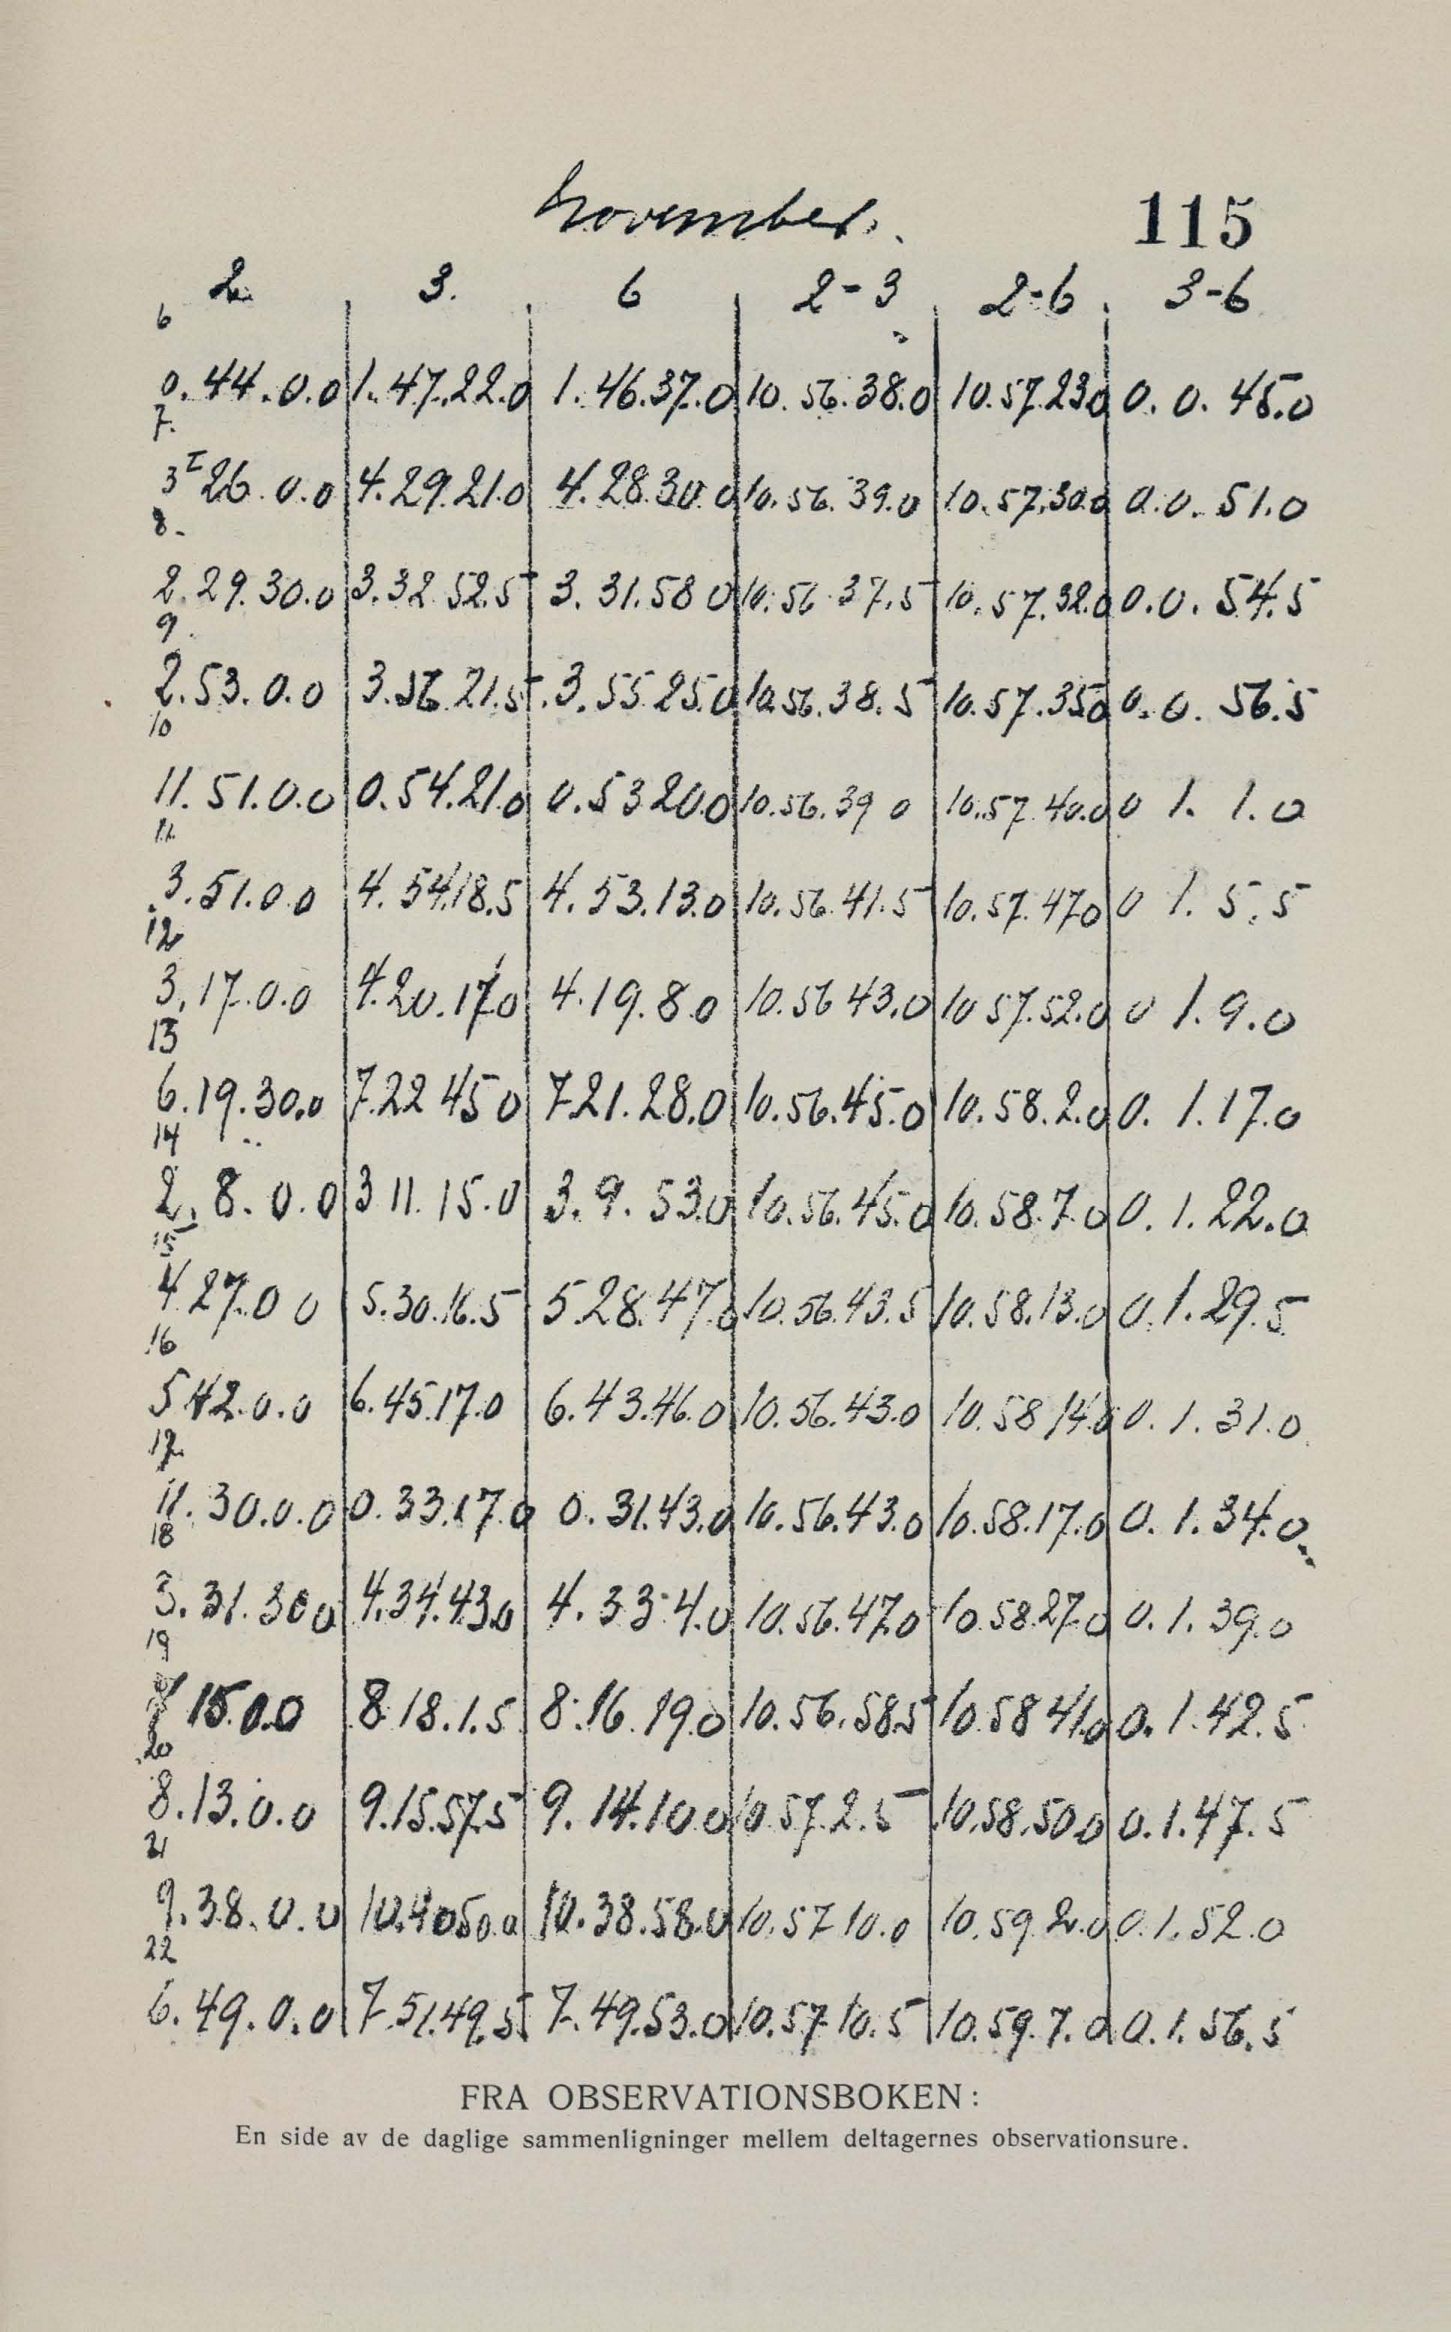 November. 115
2. 3. 6 2-3 2-6 3-6
6
0.44.0.0 1.47.22.0 1.46.37.0 10.56.38.0 10.57.23.0 0.0.45.0
7.
3 26.0.0 4.29.21.0 4.28.30.0 10.56.39.0 10.57.30.0 0.0.51.0
8.
2.29.30.0 3.32 52.5 3.31.58 0 10.56 37.5 10.57.32.0 0.0.54.5
9.
2.53.0.0 3.56 21.5 3.55 25.0 10.56.38.5 10.57.35 0 0.0.56.5
10
11.51.0.0 0.54.21.0 0.53 20.0 10.56.39 0 10.57 40.0 0 1.1.0
11.
3.51.0.0 4.54.18.5 4.53.13.0 10.56 41.5 10.57.47 0 0 1.5.5
12
3.17.0.0 4.20.17.0 4.19.8.0 10.56 43.0 10 57.52.0 0 1.9.0
13
6.19.30.0 7.22 45 0 7 21.28.0 10.56.45.0 10.58.2.0 0.1.17.0
14
2.8.0.0 3 11.15.0 3.9.53.0 10.56.45.0 10.58.7.0 0.1.22.0
15
4 27.0 0 5.30.16.5 5 28.47.0 10.56.43.5 10.58.13.0 0.1.29.5
16
5 42.0.0 6.45.17.0 6.43.46.0 10.56.43.0 10.58 14.0 0.1.31.0
17.
11.30.0.0 0.33.17.0 0.31.43.0 10.56.43.0 10.58.17.0 0.1.34.0
18
3.31.30 0 4.34.43.0 4.33 4.0 10.56.47.0 10.58 27.0 0.1.39.0
19
15.0.0 8 18.1.5 8.16.19.0 10.56.58.5 10.58 41.0 0.1.42.5
20
8.13.0.0 9.15.57.5 9.14.10 0 10 57.2.5 10.58.50.0 0.1.47.5
21
9.38.0.0 10.40 50.0 10.38.58.0 10.57 10.0 10.59 2.0 0.1.52.0
22
6.49.0.0 7.51.49.5 7.49.53.0 10.57 10.5 10.59.7.0 0.1.56.5
FRA OBSERVATIONSBOKEN:
En side av de daglige sammenligninger mellem deltagernes observationsure.